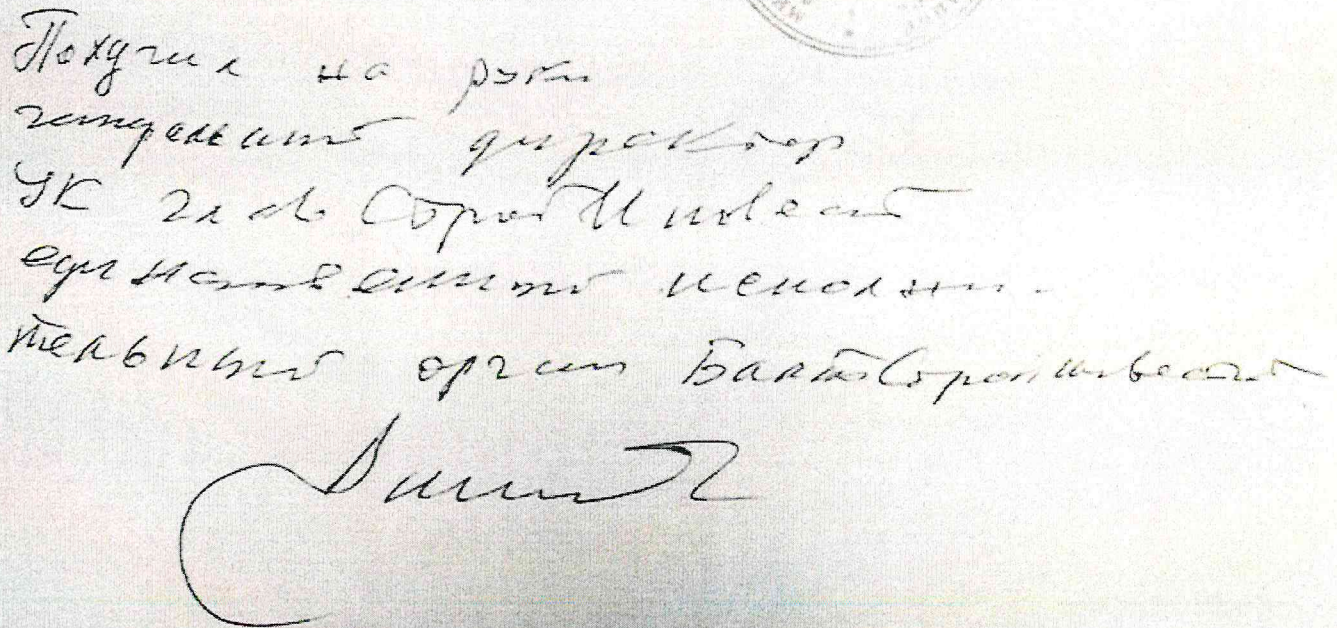 Получил на руки
генеральный директор
УК ГлавСтройИнвест
единственный исполни-
тельный орган БалтСтройинвест